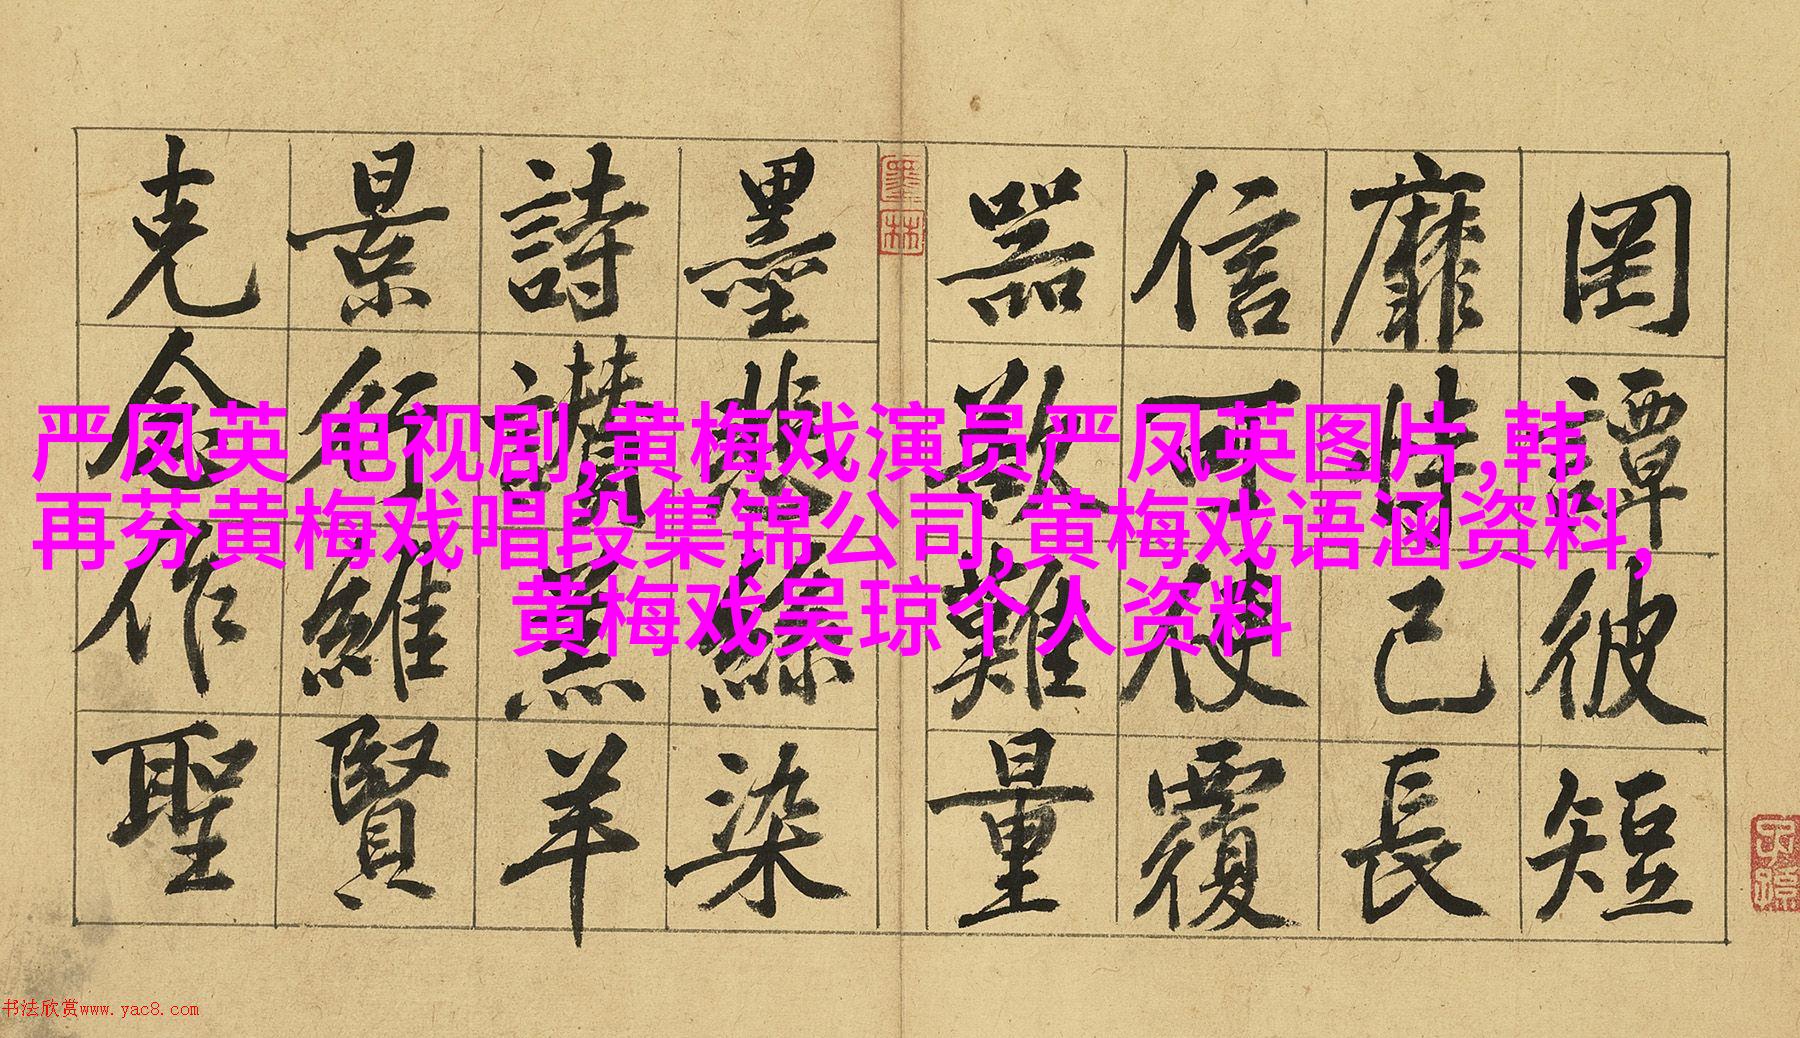 罔譚彼短
靡恃己長
信可使覆
器欲難量
墨林
墨悲絲染
詩讃羔羊
景行維賢
克念作聖
严凤英 电视剧,黄梅戏演员严凤英图片,韩
再芬黄梅戏唱段集锦公司,黄梅戏语涵资料,
黄梅戏吴琼个人资料
书法欣赏www.yac8.com